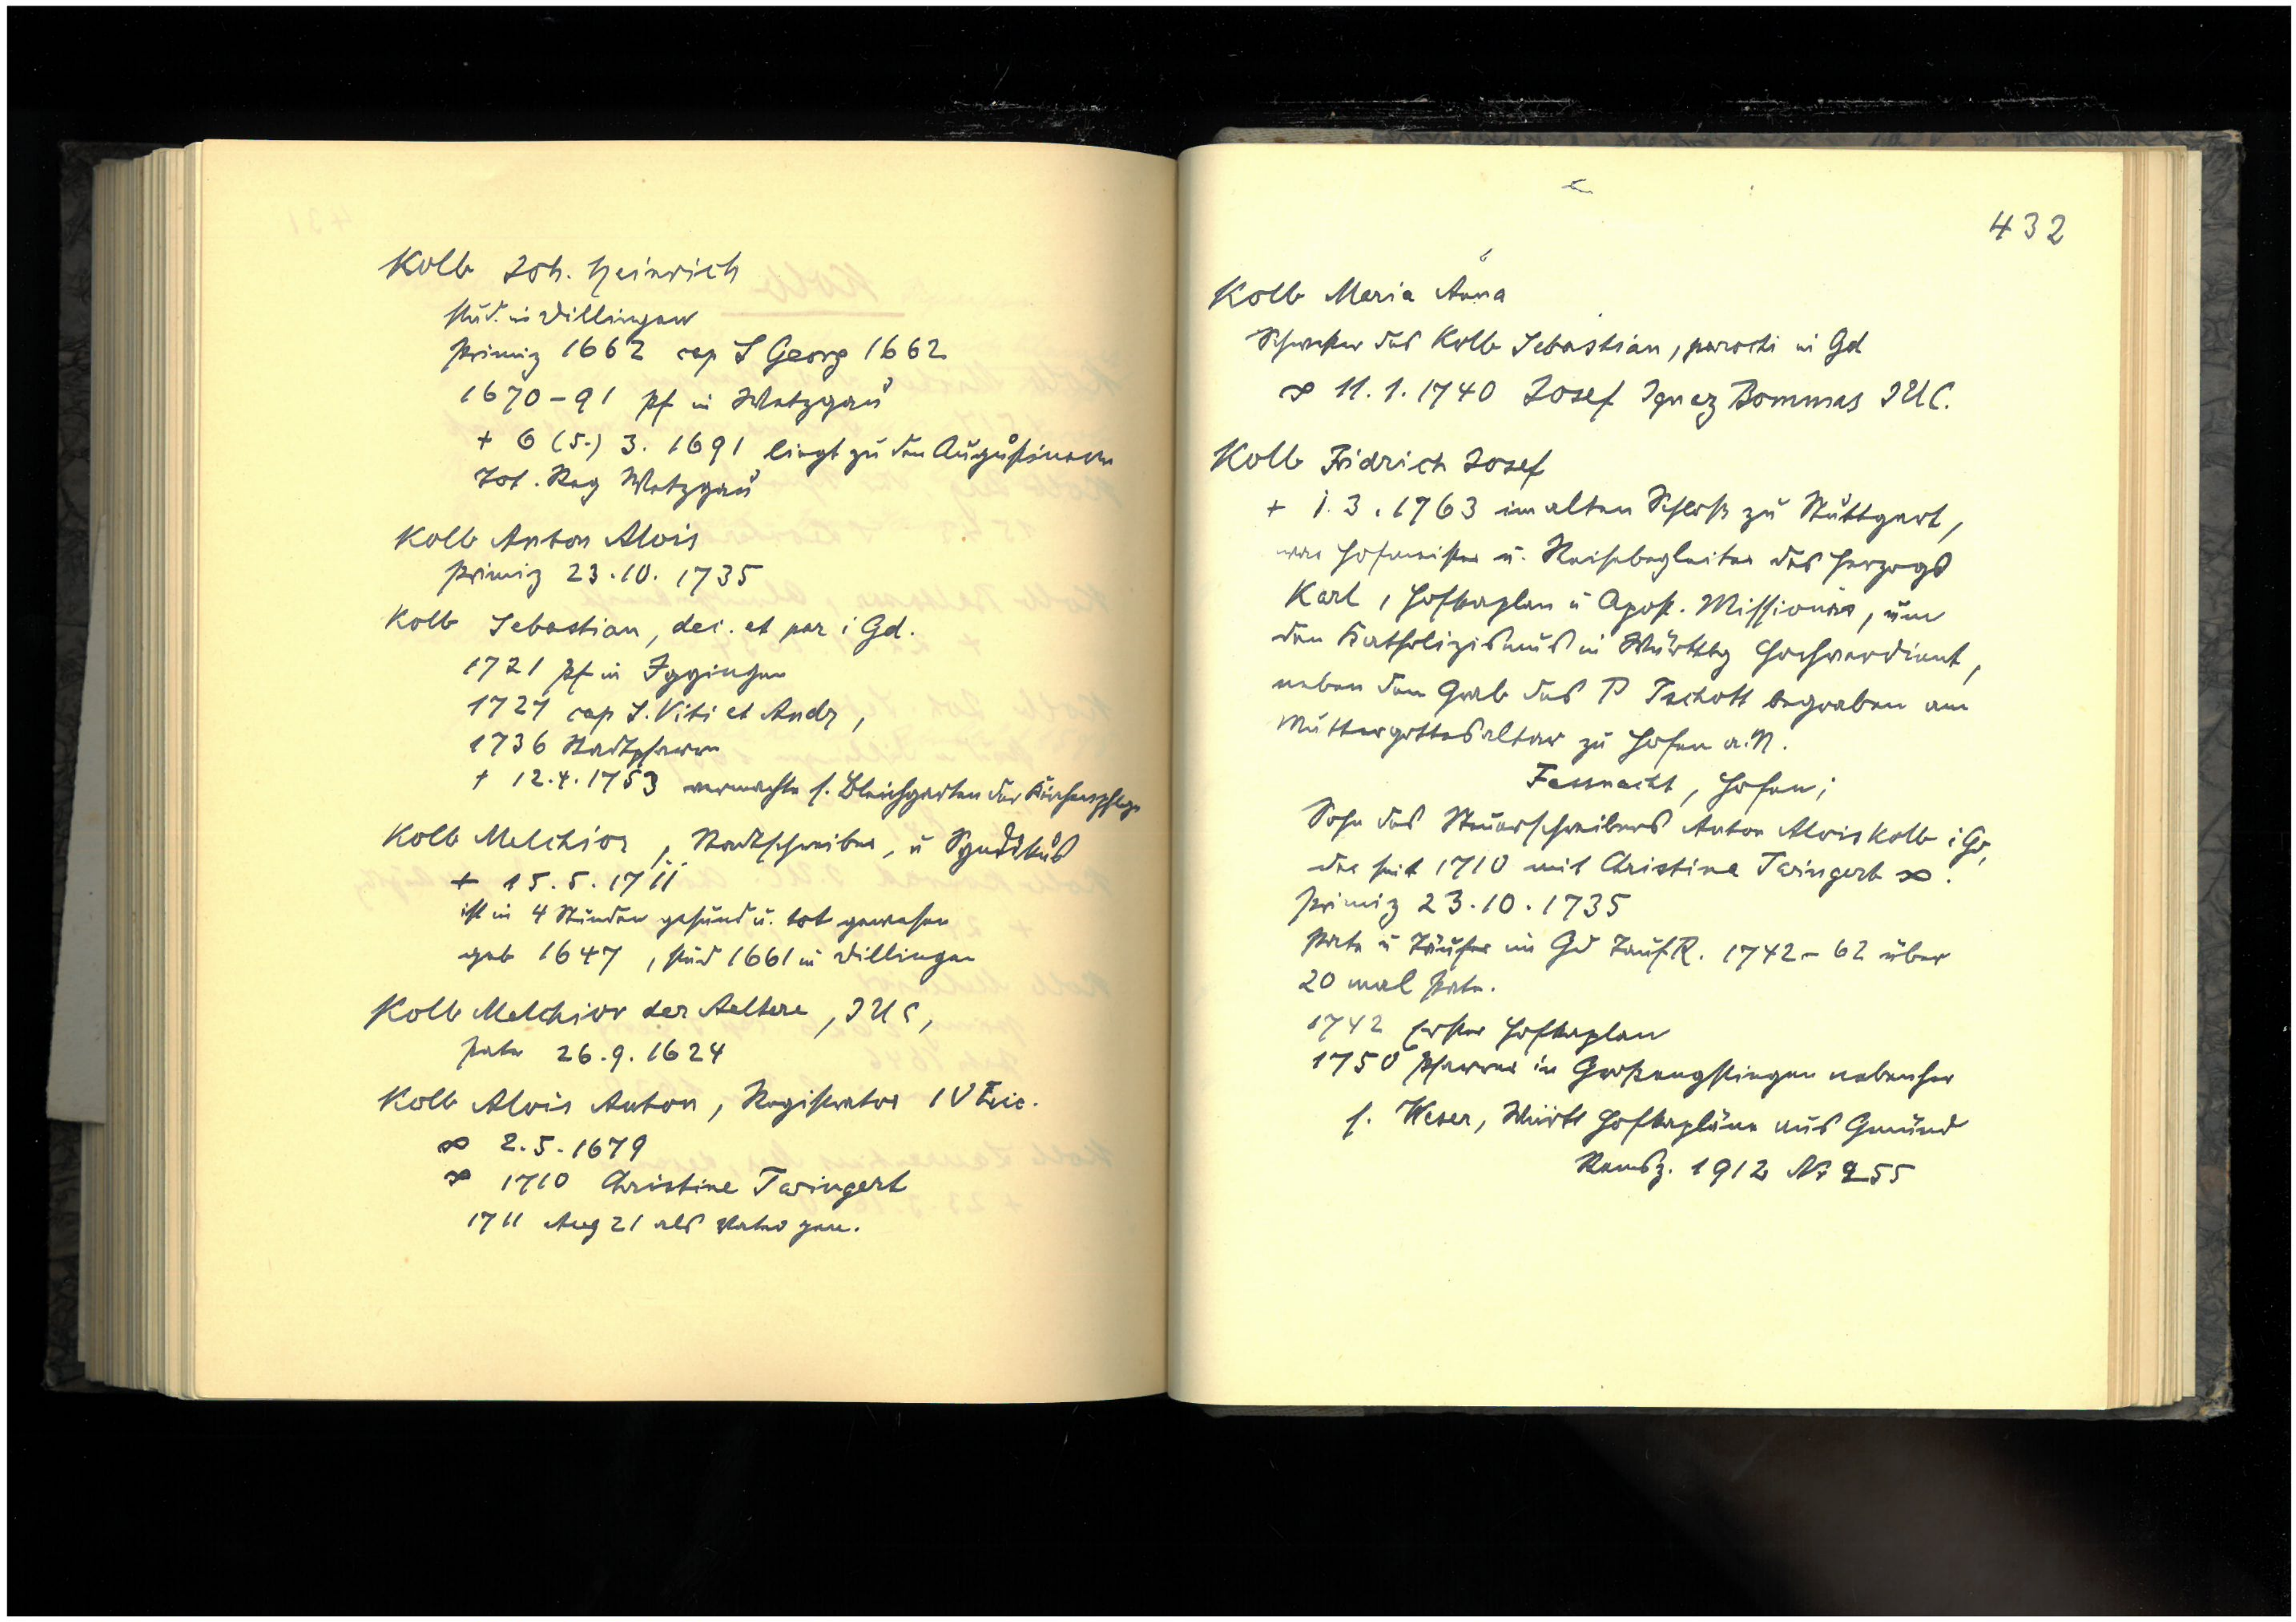 Kolb Joh. Heinrich
stud. in Dillingen
Primiz 1662 cap S Georg 1662
1670-91 Pf in Wetzgau
+ 6 (5.) 3. 1691 liegt zu den Augustinern
Tot. Reg Wetzgau
Kolb Anton Alois
Primiz 23.10.1735
Kolb Sebastian, dec. et par i Gd.
1721 Pf in Iggingen
1727 cap S. Viti et Andr,
1736 Stadtpfarrer
+ 12.4.1753 vermachte s. Bleichgarten der Kirchenpflege
Kolb Melchior, Stadtschreiber, u Syndikus
+ 15.5.1711
ist in 4 Stunden gesund u. tot gewesen
geb 1647, stud 1661 in Dillingen
Kolb Melchior der Aeltere, IUC,
Pate 26.9.1624
Kolb Alois Anton, Registrator IV
∞ 2.5.1679
∞ 1710 Christine Twingert
1711 Aug 21 als Vater gen.
432
Kolb Maria Anna
Schwester des Kolb Sebastian, parochi in Gd
∞ 11.1.1740 Josef Ignaz Bommas IUC.
Kolb Fridrich Josef
+ 1.3.1763 im alten Schloß zu Stuttgart,
war Hofmeister u. Reisebegleiter des Herzogs
Karl, Hofkaplan u Apost. Missionär, um
den Katholizismus in Württbg hochverdient,
neben dem Grab des P Tschott begraben am
Muttergottesaltar zu Hofen a.N.
Fassnacht, Hofen;
Sohn des Steuerschreibers Anton Alois Kolb i Gd,
der seit 1710 mit Christine Twingert ∞.
Primiz 23.10.1735
Pate u Täufer im Gd TaufR. 1742-62 über
20 mal Pate.
1742 Erster Hofkaplan
1750 Pfarrer in Großengstingen nebenher
s. Weser, Württ Hofkapläne aus Gmünd
Remsz. 1912 Nr 255